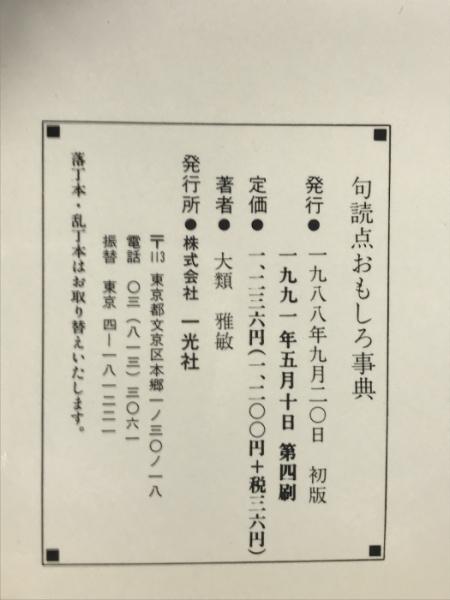 句読点おもしろ事典
発行●一九八八年九月二〇日 初版
一九九一年五月十日 第四刷
定価●一、二三六円(一、二〇〇円+税三六円)
著者●大類 雅敏
発行所●株式会社 一光社
〒113 東京都文京区本郷一ノ三〇ノ一八
電話 〇三(八一三)三〇六一
振替 東京 四―一八一二二一
落丁本・乱丁本はお取り替えいたします。